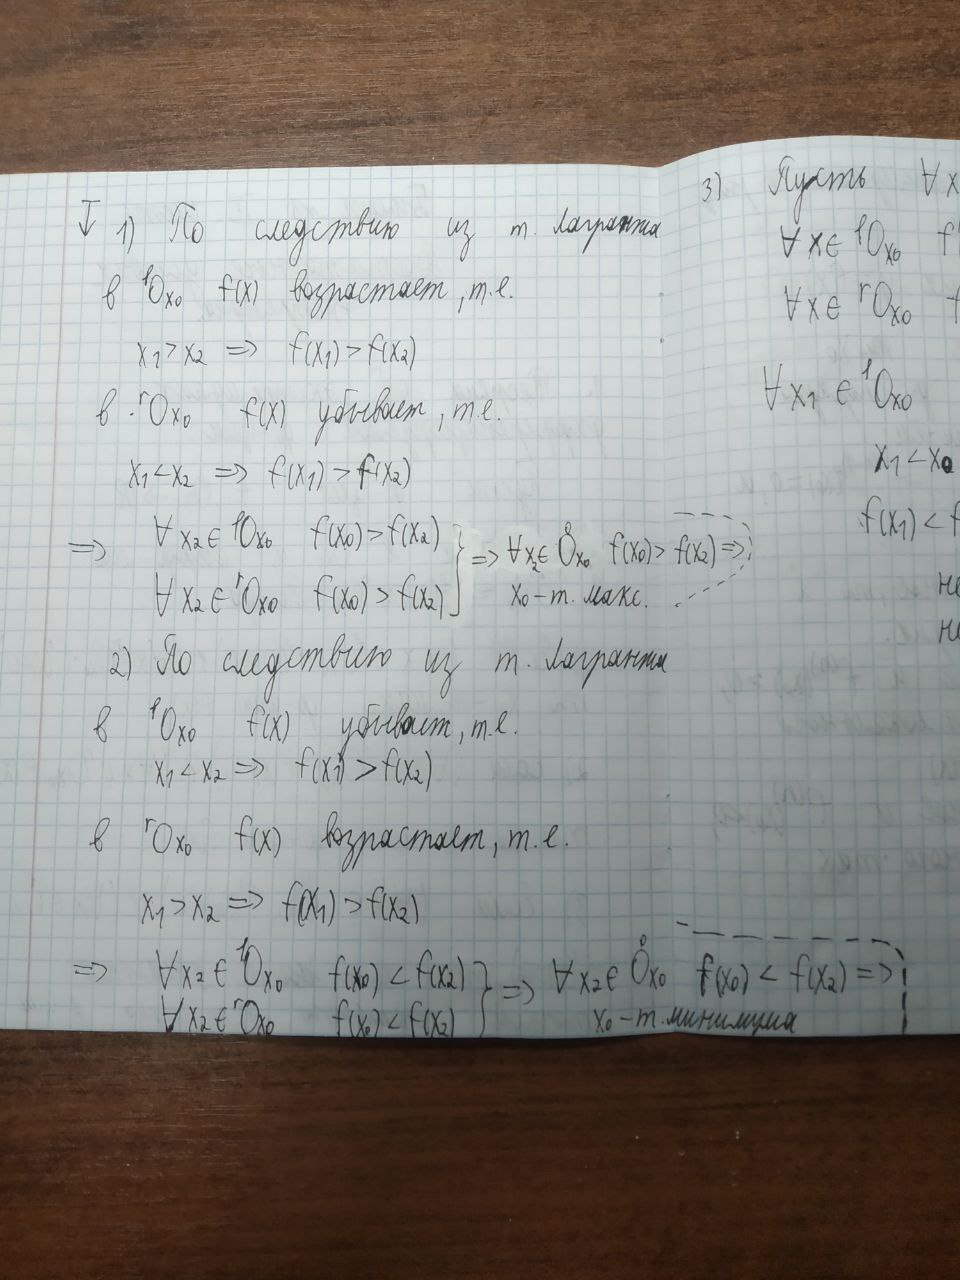 ↓ 1) По следствию из т. Лагранжа
в ˡOx₀ f(x) возрастает, т.е.
x₁ > x₂ => f(x₁) > f(x₂)
в ʳOx₀ f(x) убывает, т.е.
x₁ < x₂ => f(x₁) > f(x₂)
=> ∀x₂ ∈ ˡOx₀ f(x₀) > f(x₂)
∀x₂ ∈ ʳOx₀ f(x₀) > f(x₂)
} => ∀x₂ ∈ O̊x₀ f(x₀) > f(x₂) =>
x₀ - т. макс.
2) По следствию из т. Лагранжа
в ˡOx₀ f(x) убывает, т.е.
x₁ < x₂ => f(x₁) > f(x₂)
в ʳOx₀ f(x) возрастает, т.е.
x₁ > x₂ => f(x₁) > f(x₂)
=> ∀x₂ ∈ ˡOx₀ f(x₀) < f(x₂)
∀x₂ ∈ ʳOx₀ f(x₀) < f(x₂)
} => ∀x₂ ∈ O̊x₀ f(x₀) < f(x₂) =>
x₀ - т. минимума
3) Пусть ∀x
∀x ∈ ˡOx₀ f'
∀x ∈ ʳOx₀ f
∀x₁ ∈ ˡOx₀
x₁ < x₀
f(x₁) < f
не
не